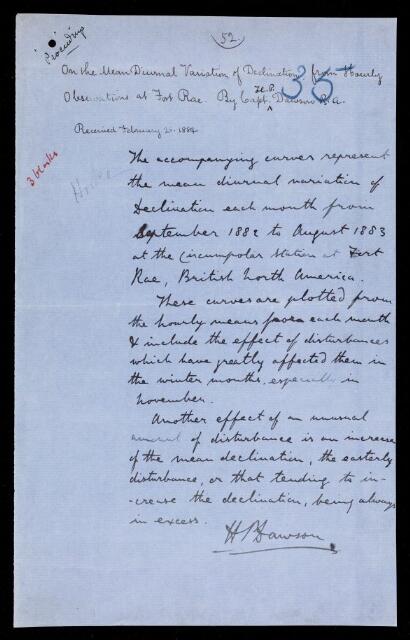 52
Proceedings
On the Mean Diurnal Variation of Declination from Hourly
35
H.P.
Observations at Fort Rae. By Capt. Dawson R.A.
Received February 20. 1884
3 blocks
The accompanying curves represent
the mean diurnal variation of
Declination each month from
September 1882 to August 1883
at the Circumpolar Station at Fort
Rae, British North America.
These curves are plotted from
the hourly means for each month
& include the effect of disturbances
which have greatly affected them in
the winter months, especially in
November.
Another effect of an unusual
amount of disturbance is an increase
of the mean declination, the easterly
disturbance, or that tending to in-
-crease the declination, being always
in excess.
H P Dawson